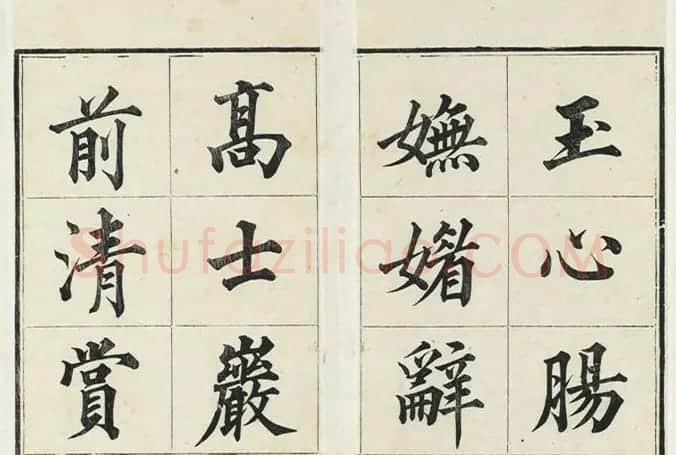 玉心腸
嫵媚辭
高士巖
前清賞
Shufaziliao.COM